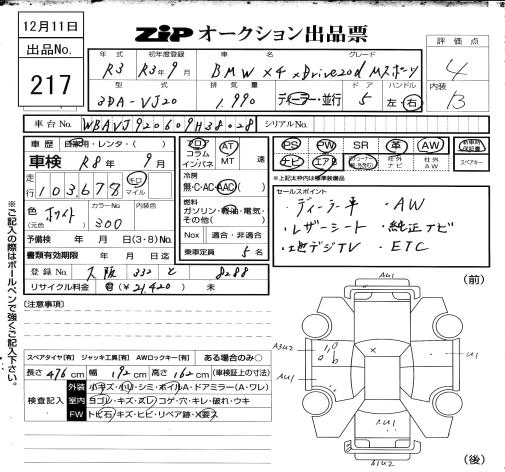 12月11日
出品No.
217
ZiP オークション出品票
年式 初年度登録 車名 グレード
R3 R3年9月 BMW X4 xDrive20d Mスポーツ
型式 排気量 ドア ハンドル
3DA-VJ20 1,990 ディーラー・並行 5 左・右
評価点
4
内装
B
車台No. WBAVJ920609H38028 シリアルNo.
車歴 自家用・レンタ・( )
車検 R8年 9月
走行 103,678 キロ マイル
色(元色) ホワイト カラーNo. 300 内装色
予備検 年 月 日(3・8)No.
書類有効期限 年 月 日迄
登録No. 大阪 332 と 8288
リサイクル料金 有(¥21,420) 未
フロア コラム インパネ
AT MT 速
冷房
無・C・AC・AAC( )
燃料
ガソリン・軽油・電気・その他( )
Nox 適合・非適合
乗車定員 5名
PS PW SR 革 AW
ナビ エアB 社外ナビ 社外AW スペアキー
※上記太枠内は標準装備品
セールスポイント
・ディーラー車 ・AW
・レザーシート ・純正ナビ
・地デジTV ・ETC
※ご記入の際はボールペンで強くご記入下さい。
(注意事項)
スペアタイヤ[有] ジャッキ工具[有] AWロックキー[有] ある場合のみ○
長さ 476cm 幅 192cm 高さ 162cm (車検証上の寸法)
検査記入
外装 小キズ・凹・シミ・ホイルA・ドアミラー(A・ワレ)
室内 ヨゴレ・キズ・スレ・コゲ・穴・キレ・破れ・ウキ
FW トビ石・キズ・ヒビ・リペア跡・X要交
(前)
AU1
A3U2
AU1
U1
AU1
(後)